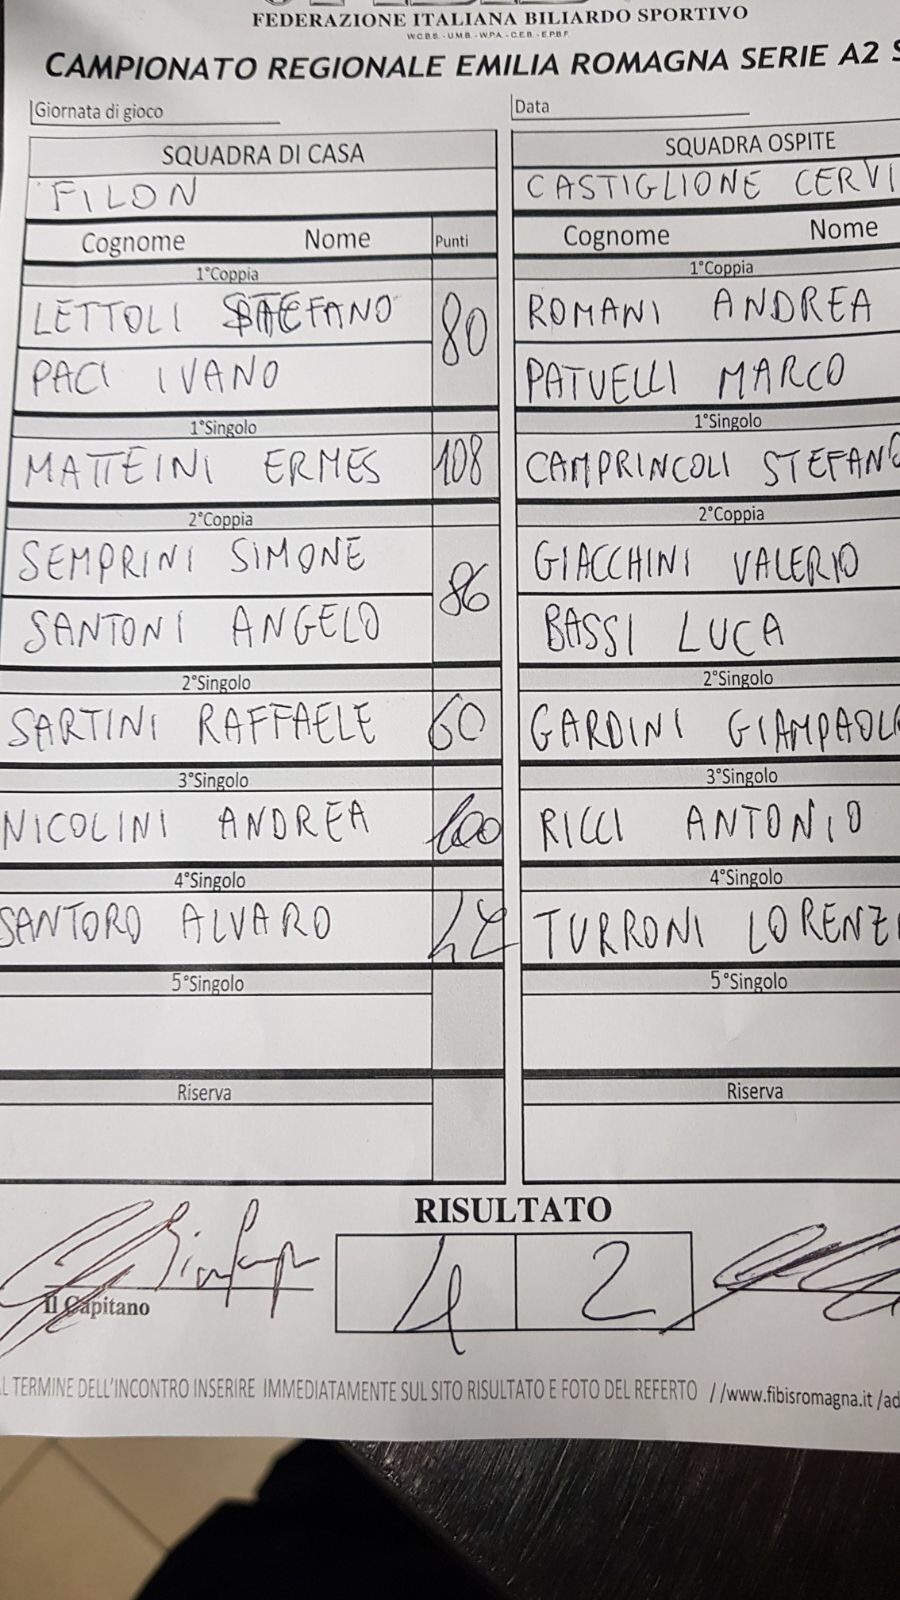 FEDERAZIONE ITALIANA BILIARDO SPORTIVO
W.C.B.S. - U.M.B. - W.P.A. - C.E.B. - E.P.B.F.
CAMPIONATO REGIONALE EMILIA ROMAGNA SERIE A2 S
Giornata di gioco Data
SQUADRA DI CASA SQUADRA OSPITE
FILON CASTIGLIONE CERVI
Cognome Nome Punti Cognome Nome
1°Coppia 1°Coppia
LETTOLI STEFANO 80 ROMANI ANDREA
PACI IVANO PATUELLI MARCO
1°Singolo 1°Singolo
MATTEINI ERMES 108 CAMPRINCOLI STEFANO
2°Coppia 2°Coppia
SEMPRINI SIMONE 86 GIACCHINI VALERIO
SANTONI ANGELO BASSI LUCA
2°Singolo 2°Singolo
SARTINI RAFFAELE 60 GARDINI GIAMPAOLO
3°Singolo 3°Singolo
NICOLINI ANDREA 100 RICCI ANTONIO
4°Singolo 4°Singolo
SANTORO ALVARO TURRONI LORENZ
5°Singolo 5°Singolo
Riserva Riserva
RISULTATO
4 2
Il Capitano
AL TERMINE DELL'INCONTRO INSERIRE IMMEDIATAMENTE SUL SITO RISULTATO E FOTO DEL REFERTO //www.fibisromagna.it /ad